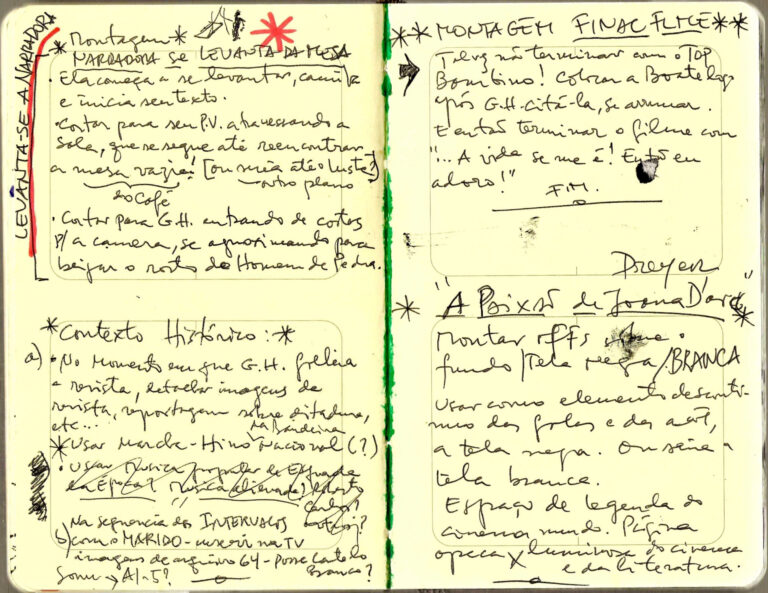 LEVANTA-SE A NARRADORA
* Montagem *
NARRADORA SE LEVANTA DA MESA
• Ela começa a se levantar, caminha
e inicia seu texto.
• Cortar para seu P.V. atravessando a
sala, que se segue até reencontrar
a mesa vazia! [ou iria até o lustre?]
do Café
outro plano
• Cortar para G.H. entrando de costas
p/ a camera, se aproximando para
beijar o rosto do Homem de Pedra.
*Contexto Histórico:*
a) • No momento em que G.H. folheia
a revista, detalhar imagens da
revista, reportagem sobre ditadura,
etc...
na Bandeira
* Usar Marcha-Hino Nacional (?)
• Usar música popular de
da Época? Música alienada? Roberto
Carlos?
Na sequencia dos INTERVALOS
b) com o MARIDO - inserir na TV
imagem de arquivo 64 - Posse Castelo
Branco?
Som → AI-5?
** MONTAGEM FINAL FILME **
Talvez não terminar com o TOP
Bombino! Colocar a Boate logo
após G.H. citá-la, se arrumar.
E então terminar o filme com
"... A vida se me é! Então eu
adoro!"
FIM.
Dreyer
* "A Paixão de Joana D'arc" *
Montar offs
fundo/Tela Negra/BRANCA
Usar como elemento descontí-
nuo das
a tela negra. Ou seria a
tela branca.
Espaço de legenda do
cinema mudo. Página
opaca x luminosa do cinema
e da literatura.